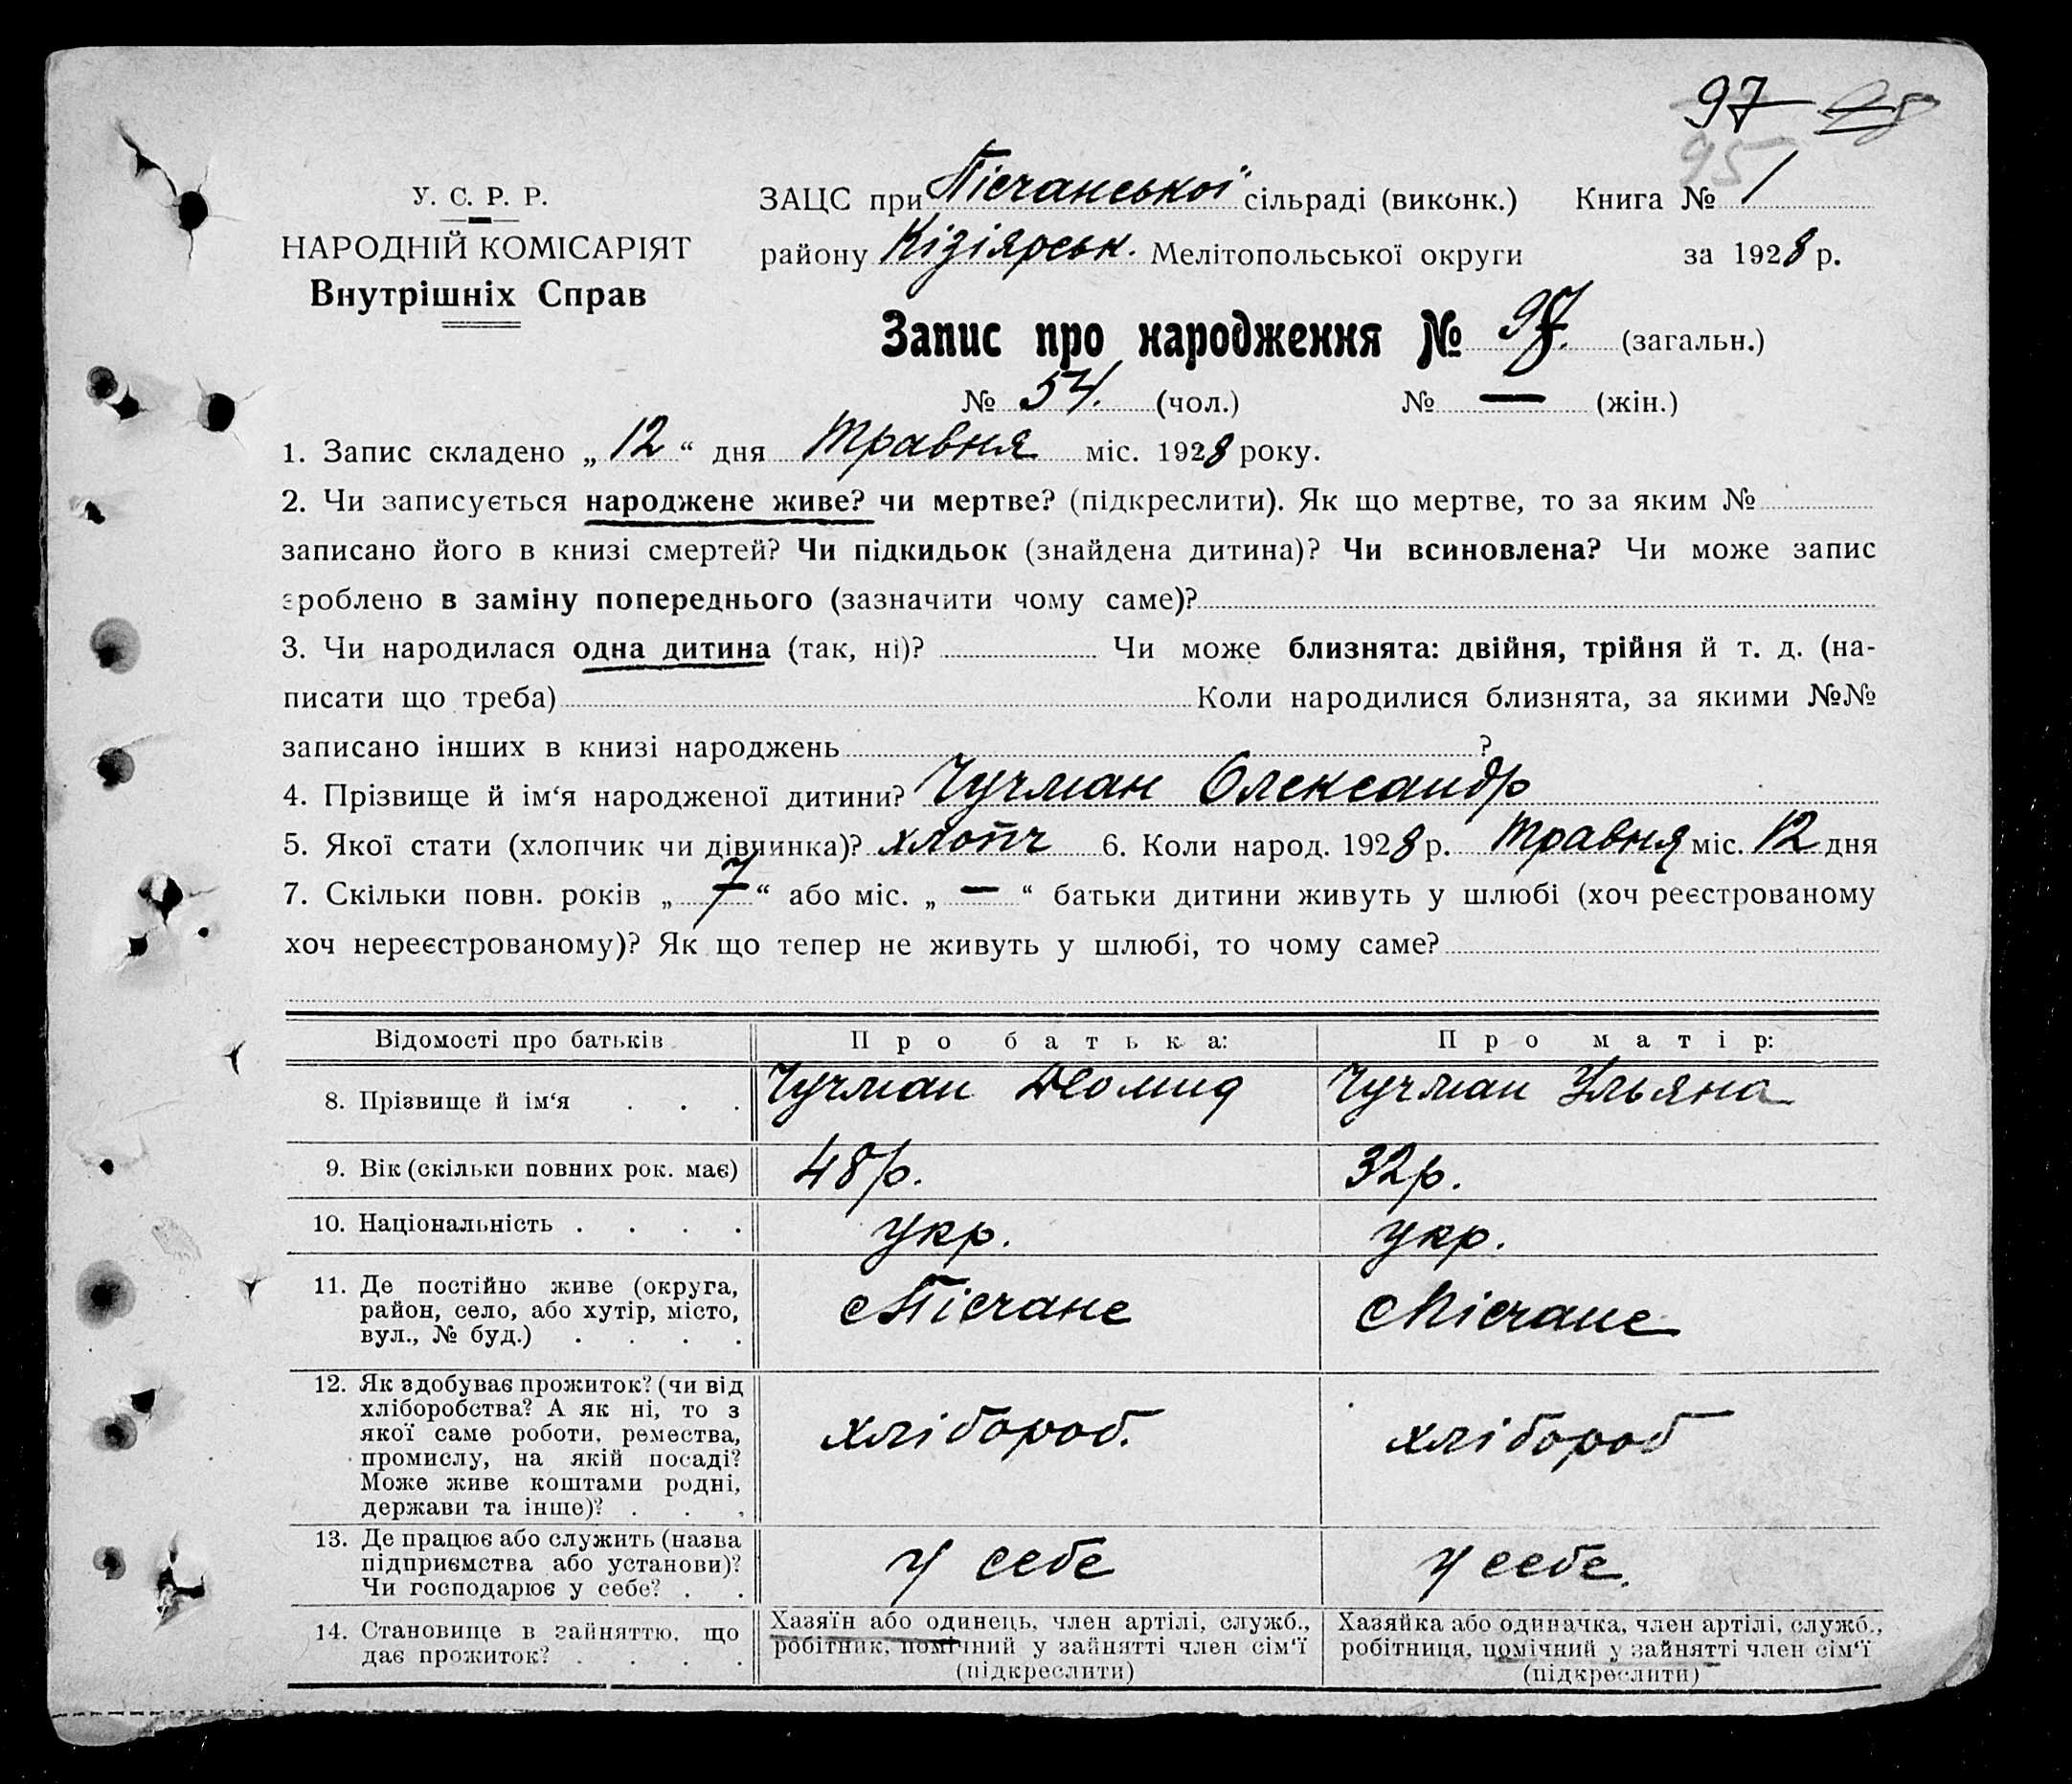 97
95
У. С. Р. Р.
НАРОДНІЙ КОМІСАРІЯТ
Внутрішніх Справ
ЗАЦС при Пісчанської сільраді (виконк.) Книга № 1
району Кізіярськ. Мелітопольської округи за 1928 р.
Запис про народження № 97. (загальн.)
№ 54. (чол.) № — (жін.)
1. Запис складено „ 12 “ дня Травня міс. 1928 року.
2. Чи записується народжене живе? чи мертве? (підкреслити). Як що мертве, то за яким №
записано його в книзі смертей? Чи підкидьок (знайдена дитина)? Чи всиновлена? Чи може запис
зроблено в заміну попереднього (зазначити чому саме)?
3. Чи народилася одна дитина (так, ні)? Чи може близнята: двійня, трійня й т. д. (на-
писати що треба) Коли народилися близнята, за якими №№
записано інших в книзі народжень ?
4. Прізвище й ім‘я народженої дитини? Чучман Олександр
5. Якої стати (хлопчик чи дівчинка)? хлопч 6. Коли народ. 1928 р. Травня міс. 12 дня
7. Скільки повн. років „ 7 “ або міс. „ — “ батьки дитини живуть у шлюбі (хоч реєстрованому
хоч нереєстрованому)? Як що тепер не живуть у шлюбі, то чому саме?
Відомості про батьків Про батька: Про матір:
8. Прізвище й ім‘я . . . Чучман Чучман Ульяна
9. Вік (скільки повних рок. має) 48 р. 32 р.
10. Національність . . . . укр. укр.
11. Де постійно живе (округа,
район, село, або хутір, місто,
вул., № буд.) . . . .
с Пісчане с Пісчане
12. Як здобуває прожиток? (чи від
хліборобства? А як ні, то з
якої саме роботи, ремества,
промислу, на якій посаді?
Може живе коштами родні,
держави та інше)? . . .
хлібороб. хлібороб
13. Де працює або служить (назва
підприємства або установи)?
Чи господарює у себе? . .
у себе у себе.
14. Становище в зайняттю, що
дає прожиток? . . . .
Хазяїн або одинець, член артілі, служб.,
робітник, помічний у зайнятті член сім‘ї
(підкреслити)
Хазяйка або одиначка, член артілі, служб.,
робітниця, помічний у зайнятті член сім‘ї
(підкреслити)